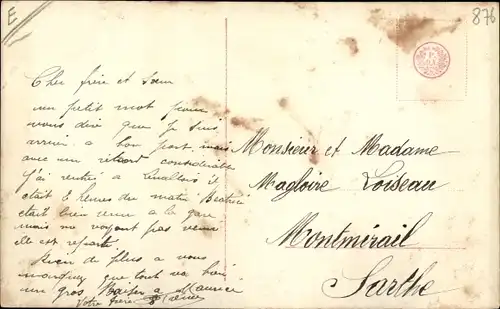 E
876
Cher frère et Sœur
un petit mot pour
vous dire que Je suis
arrivé a bon port, mais
avec un retard considerable
J'ai rentré a Levallois il
etait 8 heures du matin Beatrice
etait bien venue a la gare
mais ne voyant pas venir
elle est repartie
Rien de plus a vous
que tout va bien
un gros Baiser a Maurice
Votre frère
Monsieur et Madame
Magloire Loiseau
Montmirail
Sarthe